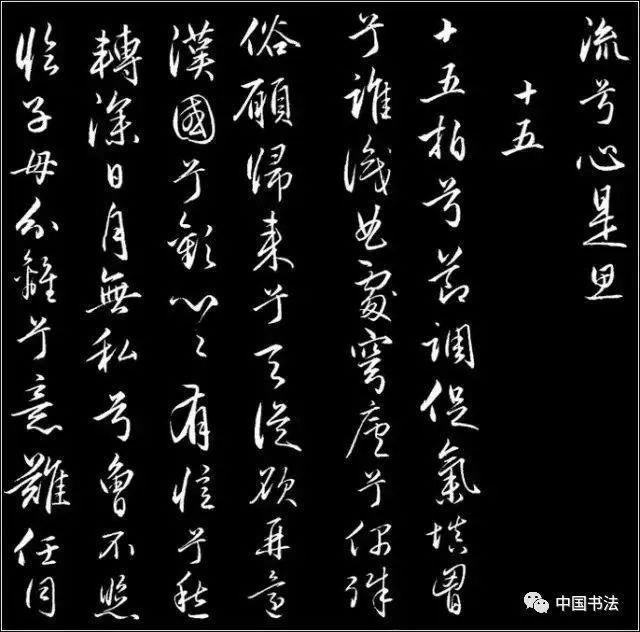 流兮心是思
十五
十五拍兮節調促氣填胸
兮誰識曲處穹廬兮偶殊
俗願歸來兮天從欲再還
漢國兮歡心々有憶兮愁
轉深日月無私兮曾不照
臨子母分離兮意難任同
中国书法